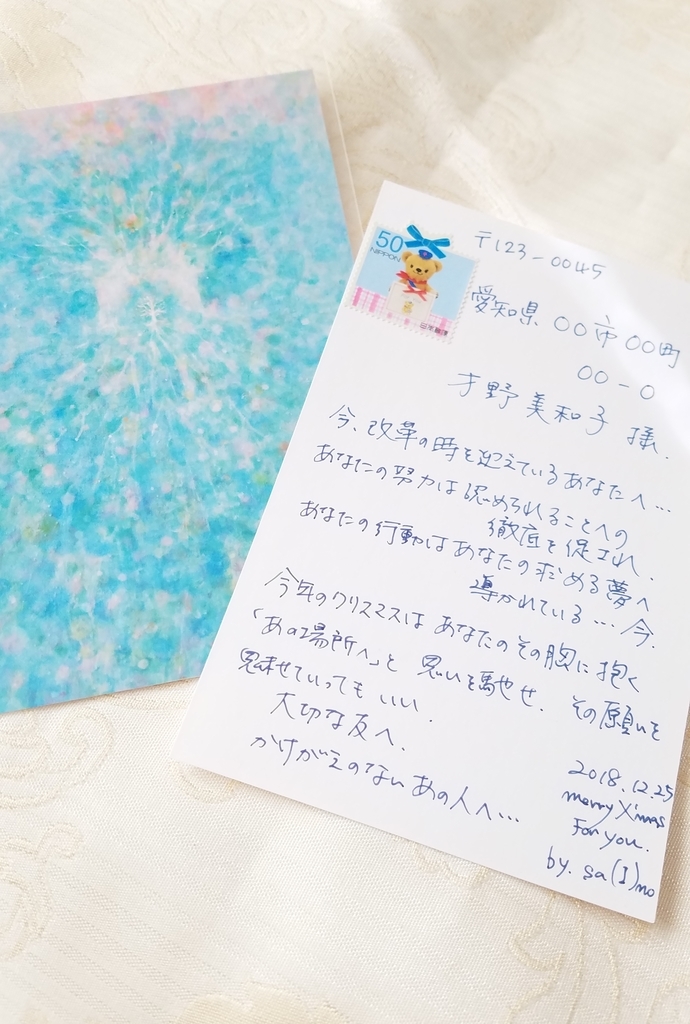 50
NIPPON
日本郵便
〒123-0045
愛知県 〇〇市〇〇町
〇〇-〇
才野美和子 様.
今、改革の時を迎えているあなたへ…
あなたの努力は認められることへの
徹底を促され.
あなたの行動はあなたの求める夢へ
導かれている…今.
今年のクリスマスは あなたのその胸に抱く
「あの場所へ」と 思いを馳せ. その願いを
見せていってもいい.
大切な友へ.
かけがえのないあの人へ…
2018.12.25
merry X'mas
For you.
by. sa(I)no